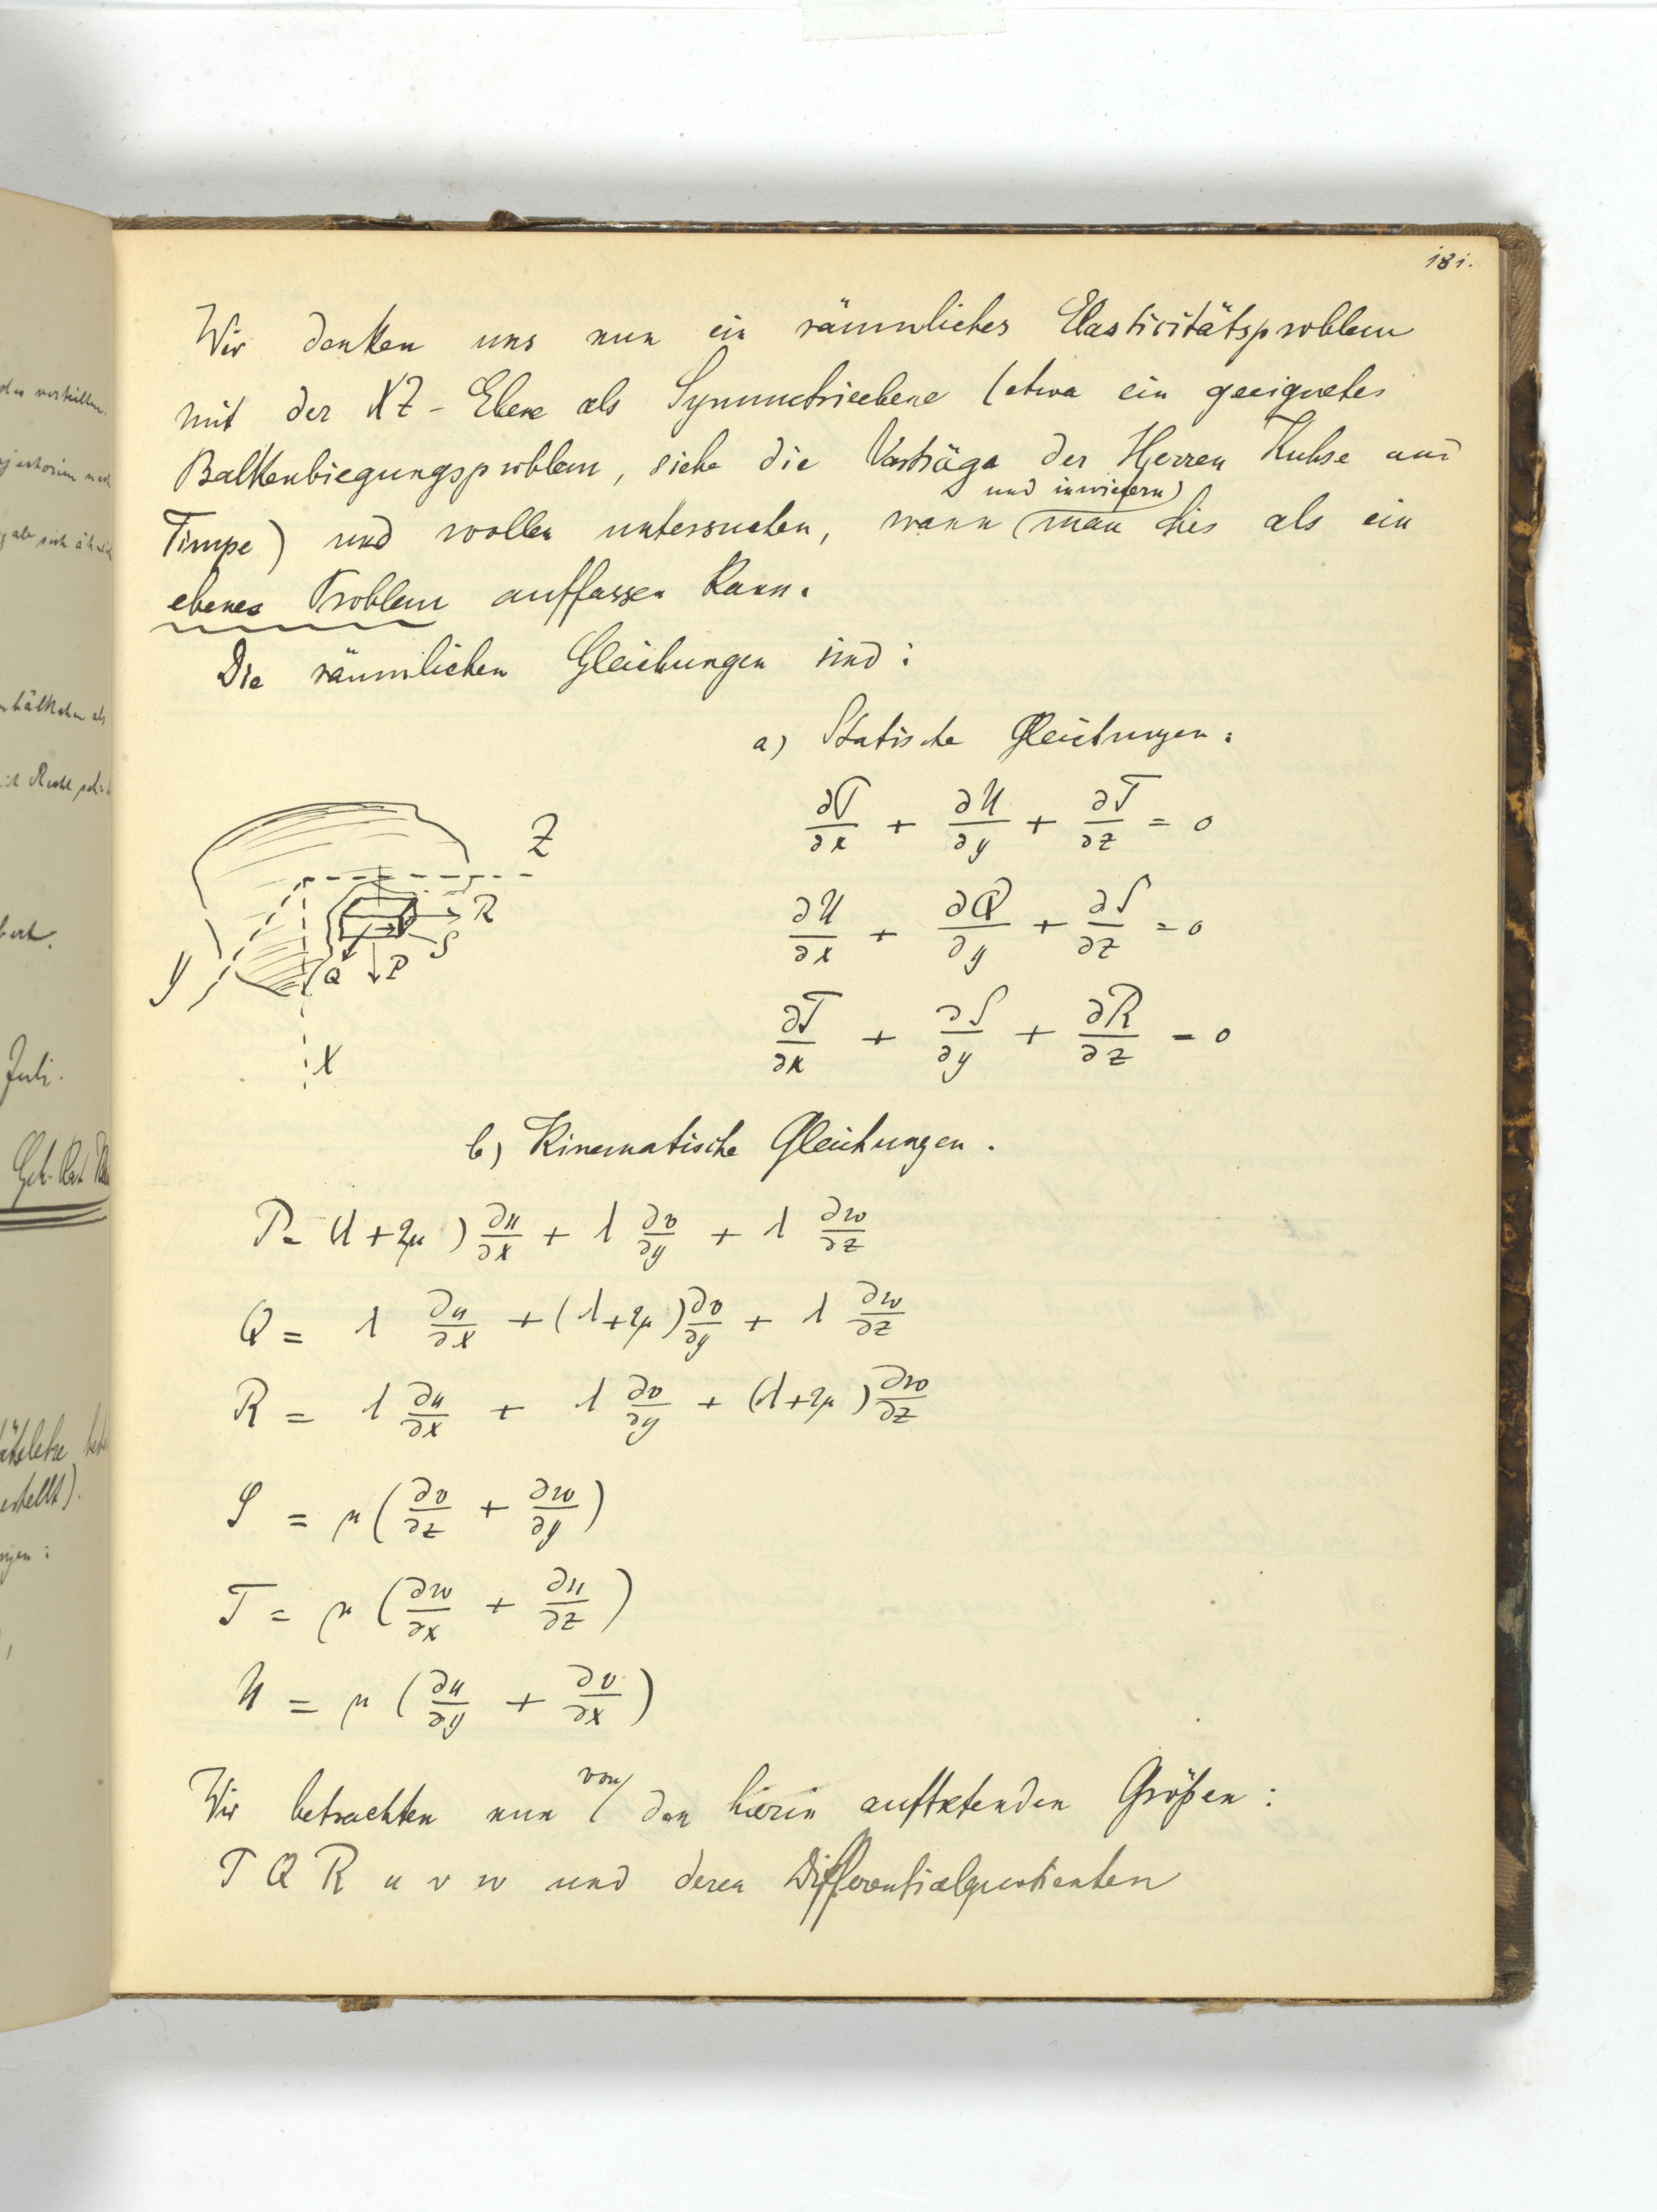 181.
Wir denken uns nun ein räumliches Elasticitätsproblem
mit der XZ-Ebene als Symmetrieebene (etwa ein geeignetes
Balkenbiegungsproblem, siehe die Vorträge der Herren Kuhse und
und inwiefern
Timpe) und wollen untersuchen, wann man dies als ein
ebenes Problem auffassen kann.
Die räumlichen Gleichungen sind:
a) Statische Gleichungen:
∂P/∂x + ∂U/∂y + ∂T/∂z = 0
∂U/∂x + ∂Q/∂y + ∂S/∂z = 0
∂T/∂x + ∂S/∂y + ∂R/∂z = 0
Z
R
S
Q P
y
X
b) Kinematische Gleichungen.
P = (λ+2μ) ∂u/∂x + λ ∂v/∂y + λ ∂w/∂z
Q = λ ∂u/∂x + (λ+2μ) ∂v/∂y + λ ∂w/∂z
R = λ ∂u/∂x + λ ∂v/∂y + (λ+2μ) ∂w/∂z
S = μ (∂v/∂z + ∂w/∂y)
T = μ (∂w/∂x + ∂u/∂z)
U = μ (∂u/∂y + ∂v/∂x)
von
Wir betrachten nun den hierin auftretenden Größen:
P Q R u v w und deren Differentialquotienten
Juli.